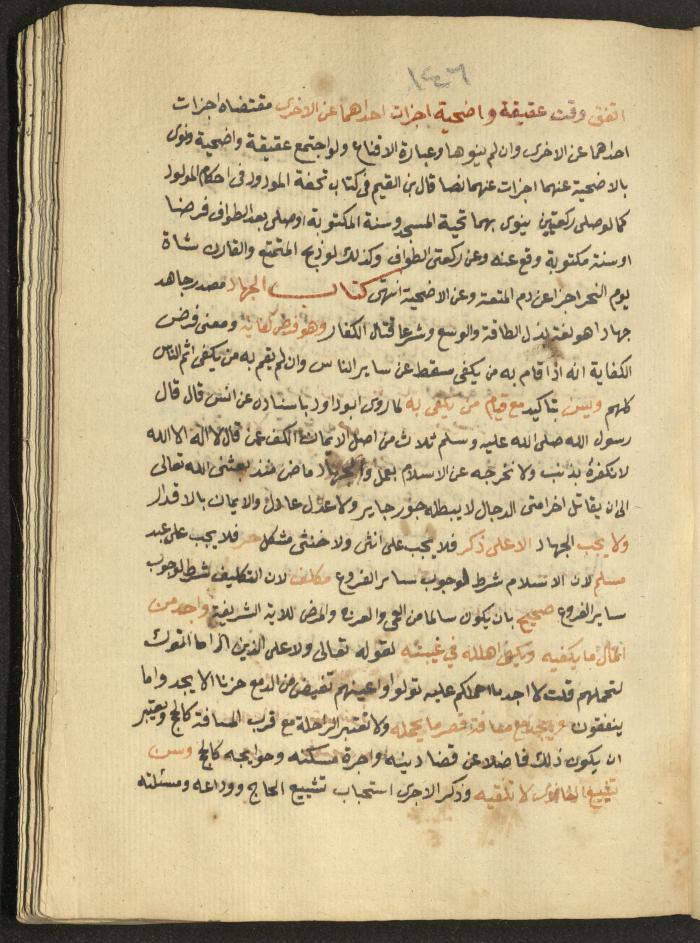 ١٤٦
اتفق وقت عقيقة واضحية اجزات احداهما عن الاخرى مقتضاه اجزات
احداهما عن الاخرى وان لم ينوها وعبارة الاقناع ولو اجتمع عقيقة واضحية ونوى
بالاضحية عنهما اجزات عنهما نصا قال بن القيم في كتاب تحفة المودود في احكام المولود
كما لو صلى ركعتين ينوى بهما تحية المسجد وسنة المكتوبة او صلى بعد الطواف فرضا
او سنة مكتوبة وقع عنه وعن ركعتى الطواف وكذلك لو ذبح المتمتع والقارن شاة
يوم النحر اجزا عن دم المتعة وعن الاضحية انتهى كتاب الجهاد مصدر جاهد
جهادا هو لغة بذل الطاقة والوسع وشرعا قتال الكفار وهو فرض كفاية ومعنى فرض
الكفاية انه اذا قام به من يكفى سقط عن ساير الناس وان لم يقم به من يكفى اثم الناس
كلهم ويسن بتاكيد مع قيام من يكفى به لما روى ابو داود باسناده عن انس قال قال
رسول الله صلى الله عليه وسلم ثلاث من اصل الايمان الكف عن قال لا اله الا الله
لا نكفره بذنب ولا نخرجه عن الاسلام بعمل والجهاد ماض منذ بعثنى الله تعالى
الى ان يقاتل اخر امتى الدجال لا يبطله جور جاير ولا عدل عادل والايمان بالاقدار
ولا يجب الجهاد الا على ذكر فلا يجب على انثى ولا خنثى مشكل حر فلا يجب على عبد
مسلم لان الاسلام شرط لوجوب ساير الفروع مكلف لان التكليف شرط لوجوب
ساير الفروع صحيح بان يكون سالما من العمى والعرج والمرض للاية الشريفة واجد من
المال ما يكفيه ويكفى اهله في غيبته لقوله تعالى ولا على الذين اذا ما اتوك
لتحملهم قلت لا اجد ما احملكم عليه تولوا واعينهم تفيض من الدمع حزنا الا يجدوا ما
ينفقون ويجد مع مسافة قصر ما يحمله ولا تعتبر الراحلة مع قرب المسافة كالحج ويعتبر
ان يكون ذلك فاضلا عن قضا دينه واجرة مسكنه وحوايجه كالحج وسن
تشييع الغازى لا تلقيه وذكر الاجرى استحباب تشييع الحاج ووداعه ومسئلته